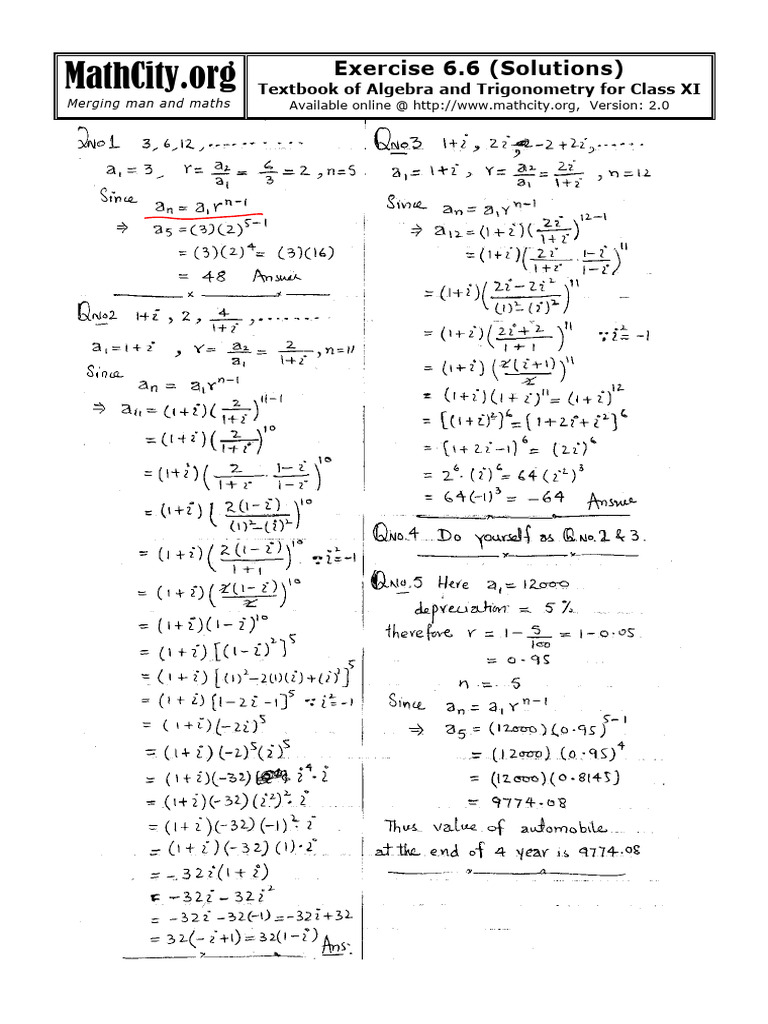 MathCity.org
Merging man and maths
Exercise 6.6 (Solutions)
Textbook of Algebra and Trigonometry for Class XI
Available online @ http://www.mathcity.org, Version: 2.0
QNo1 3, 6, 12, ........
a₁ = 3, r = a₂/a₁ = 6/3 = 2, n=5
Since aₙ = a₁rⁿ⁻¹
⇒ a₅ = (3)(2)⁵⁻¹
= (3)(2)⁴ = (3)(16)
= 48 Answer
QNo2 1+i, 2, 4/(1+i), .......
a₁=1+i, r = a₂/a₁ = 2/(1+i), n=11
Since
aₙ = a₁rⁿ⁻¹
⇒ a₁₁ = (1+i)(2/(1+i))¹¹⁻¹
= (1+i)(2/(1+i))¹⁰
= (1+i)(2/(1+i) · (1-i)/(1-i))¹⁰
= (1+i)(2(1-i)/((1)²-(i)²))¹⁰
= (1+i)(2(1-i)/(1+1))¹⁰ ∵ i²=-1
= (1+i)(2(1-i)/2)¹⁰
= (1+i)(1-i)¹⁰
= (1+i)[(1-i)²]⁵
= (1+i)[(1)²-2(1)(i)+(i)²]⁵
= (1+i)[1-2i-1]⁵ ∵ i²=-1
= (1+i)(-2i)⁵
= (1+i)(-2)⁵(i)⁵
= (1+i)(-32) i⁴·i
= (1+i)(-32)(i²)²·i
= (1+i)(-32)(-1)²·i
= (1+i)(-32)(1)·i
= -32i(1+i)
= -32i-32i²
= -32i-32(-1) = -32i+32
= 32(-i+1) = 32(1-i) Ans:
QNo3 1+i, 2i, -2+2i, ......
a₁ = 1+i, r = a₂/a₁ = 2i/(1+i), n=12
Since aₙ = a₁rⁿ⁻¹
⇒ a₁₂ = (1+i)(2i/(1+i))¹²⁻¹
= (1+i)(2i/(1+i) · (1-i)/(1-i))¹¹
= (1+i)((2i-2i²)/((1)²-(i)²))¹¹
= (1+i)((2i+2)/(1+1))¹¹ ∵ i²=-1
= (1+i)(2(i+1)/2)¹¹
= (1+i)(1+i)¹¹ = (1+i)¹²
= [(1+i)²]⁶ = [1+2i+i²]⁶
= [1+2i-1]⁶ = (2i)⁶
= 2⁶·(i)⁶ = 64(i²)³
= 64(-1)³ = -64 Answer
QNo.4 Do yourself as Q.No.2 & 3.
QNo.5 Here a₁ = 12000
depreciation = 5%
therefore r = 1 - 5/100 = 1-0.05
= 0.95
n = 5
Since aₙ = a₁rⁿ⁻¹
⇒ a₅ = (12000)(0.95)⁵⁻¹
= (12000)(0.95)⁴
= (12000)(0.8145)
= 9774.08
Thus value of automobile
at the end of 4 year is 9774.08